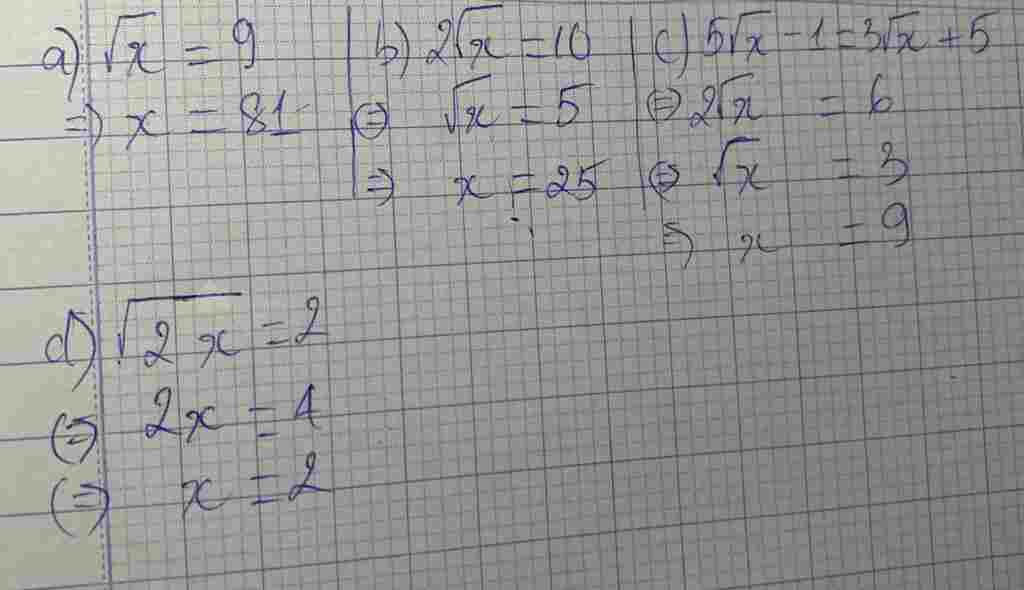 a) √x = 9
=> x = 81
b) 2√x = 10
<=> √x = 5
=> x = 25
c) 5√x - 1 = 3√x + 5
<=> 2√x = 6
<=> √x = 3
=> x = 9
d) √2x = 2
<=> 2x = 4
<=> x = 2